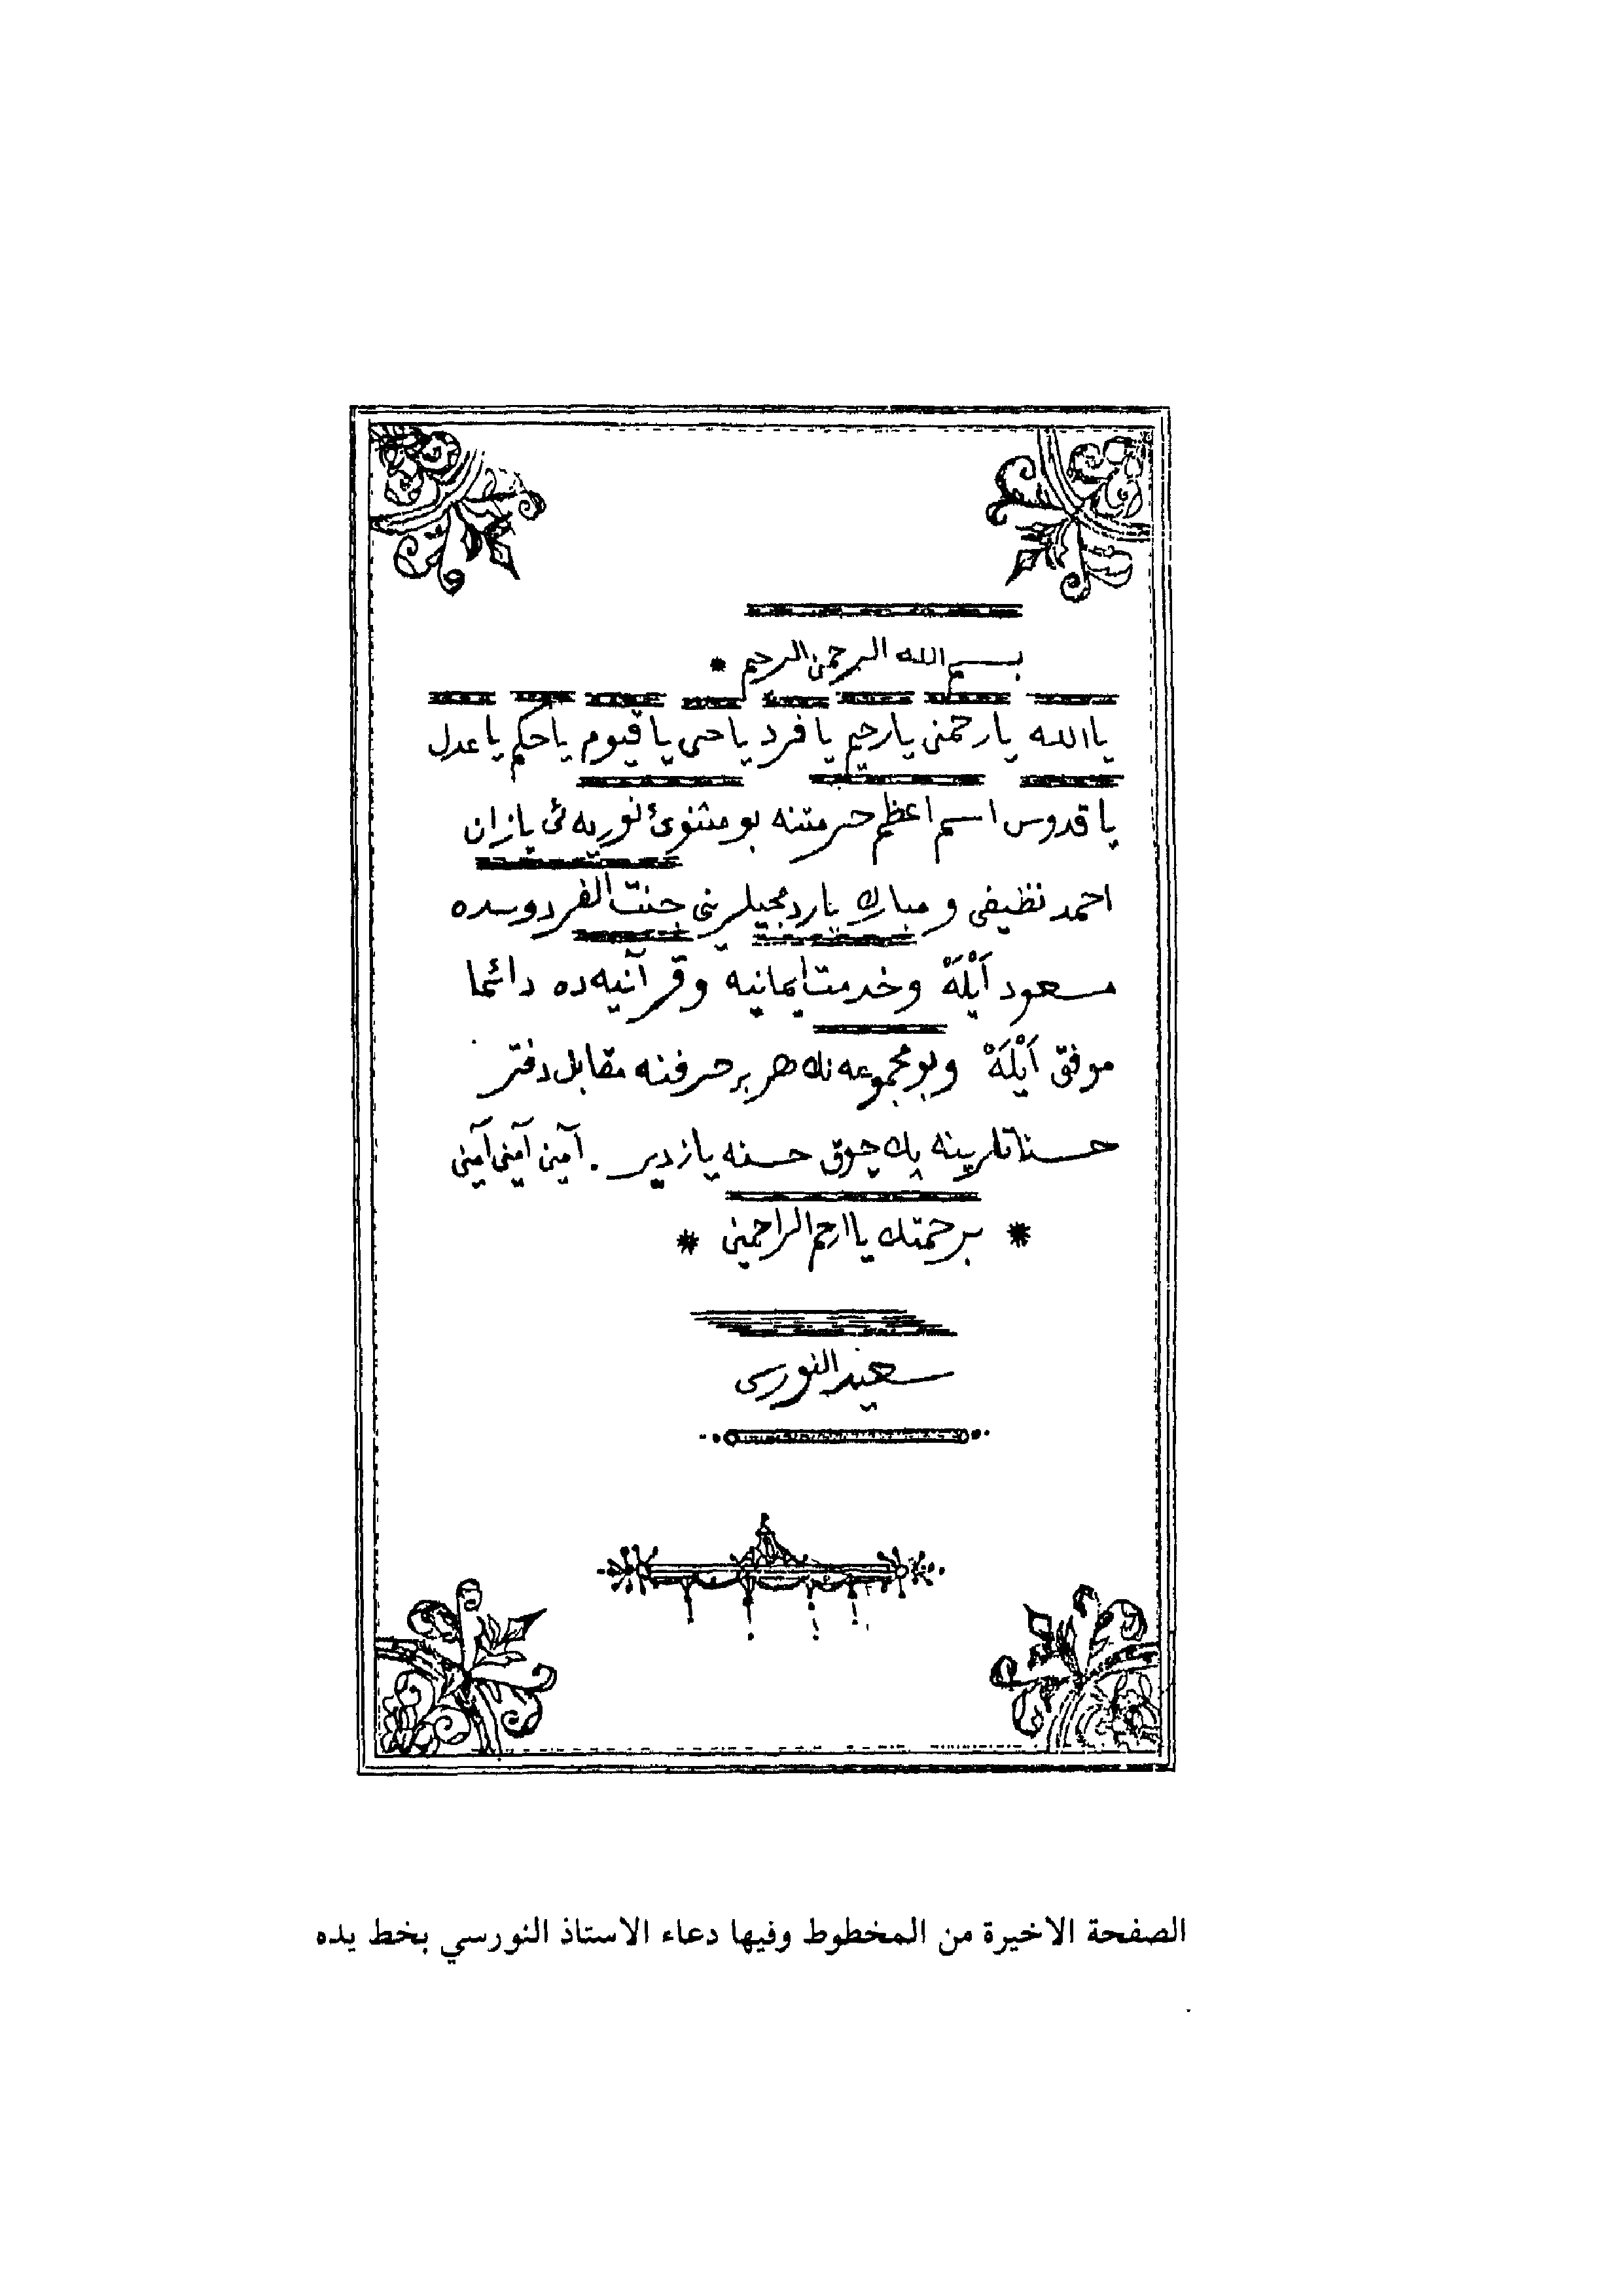 بسم الله الرحمن الرحيم *
يا الله يا رحمن يا رحيم يا فرد يا حى يا قيوم يا حكم يا عدل
يا قدوس اسم اعظم حرمتنه بو مثنوئ نوريه ئى يازان
احمد نظيفى و مبارك ياردمجيلرينى جنت الفردوسده
مسعود اَيْلَهْ وخدمت ايمانيه وقرآنيه ده دائما
موفق اَيْلَهْ وبو مجموعه نك هر بر حرفنه مقابل دفتر
حسناتلرينه پك چوق حسنه يازدير . آمين آمين آمين
* برحمتك يا ارحم الراحمين *
سعيد النورسى
الصفحة الاخيرة من المخطوط وفيها دعاء الاستاذ النورسي بخط يده